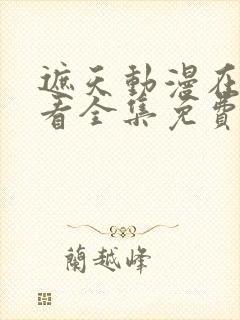 遮天動漫在
看全集免費
蘭越峰